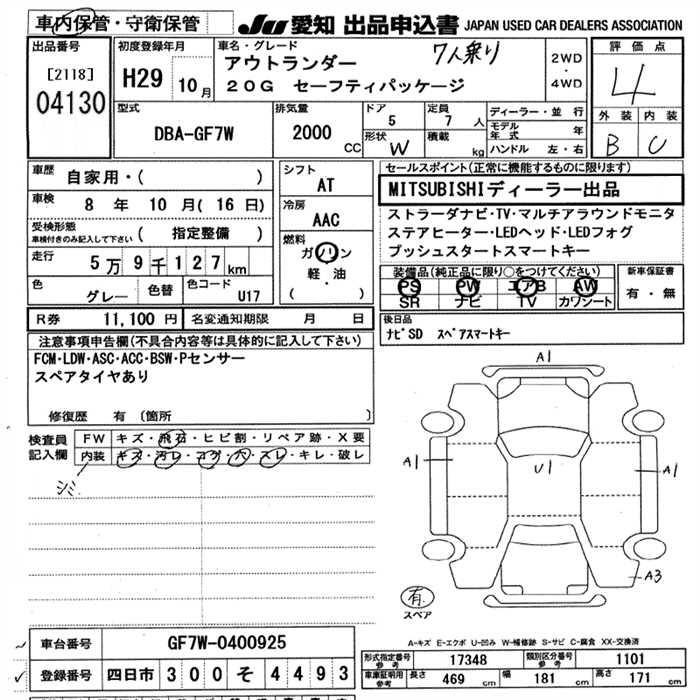 車内保管・守衛保管
JU 愛知 出品申込書 JAPAN USED CAR DEALERS ASSOCIATION
出品番号
[2118]
04130
初度登録年月
H29 10月
車名・グレード
7人乗り
アウトランダー
20G セーフティパッケージ
2WD
・
4WD
評価点
4
外装 内装
B C
型式
DBA-GF7W
排気量
2000 CC
ドア 5
定員 7 人
形状 W
積載 kg
ディーラー・並行
モデル年式 年
ハンドル 左・右
車歴 自家用・( )
車検 8 年 10 月( 16 日)
受検形態
車検付きのみ記入して下さい ( 指定整備 )
走行 5万9千127km
色 グレー 色替 色コード U17
シフト
AT
冷房
AAC
燃料
ガソリン
軽・油
( )
セールスポイント(正常に機能するものに限ります)
MITSUBISHIディーラー出品
ストラーダナビ・TV・マルチアラウンドモニタ
ステアヒーター・LEDヘッド・LEDフォグ
プッシュスタートスマートキー
装備品(純正品に限り○をつけてください)
PS PW エアB AW
SR ナビ TV カワシート
新車保証書
有・無
R券 11,100 円 名変通知期限 月 日
後日品
ナビSD スペアスマートキー
注意事項申告欄(不具合内容等は具体的に記入して下さい)
FCM・LDW・ASC・ACC・BSW・Pセンサー
スペアタイヤあり
修復歴 有 (箇所 )
検査員
記入欄
FW キズ・飛石・ヒビ割・リペア跡・X要
内装 キズ・汚レ・コゲ・穴・スレ・キレ・破レ
シミ
A1
A1
U1
A1
A3
有.
スペア
A-キズ E-エクボ U-凹み W-補修跡 S-サビ C-腐食 XX-交換済
車台番号 GF7W-0400925
登録番号 四日市 300 そ 4493
形式指定番号
参考 17348
類別区分番号
参考 1101
車庫証明用
参考
長さ 469 cm 幅 181 cm 高さ 171 cm